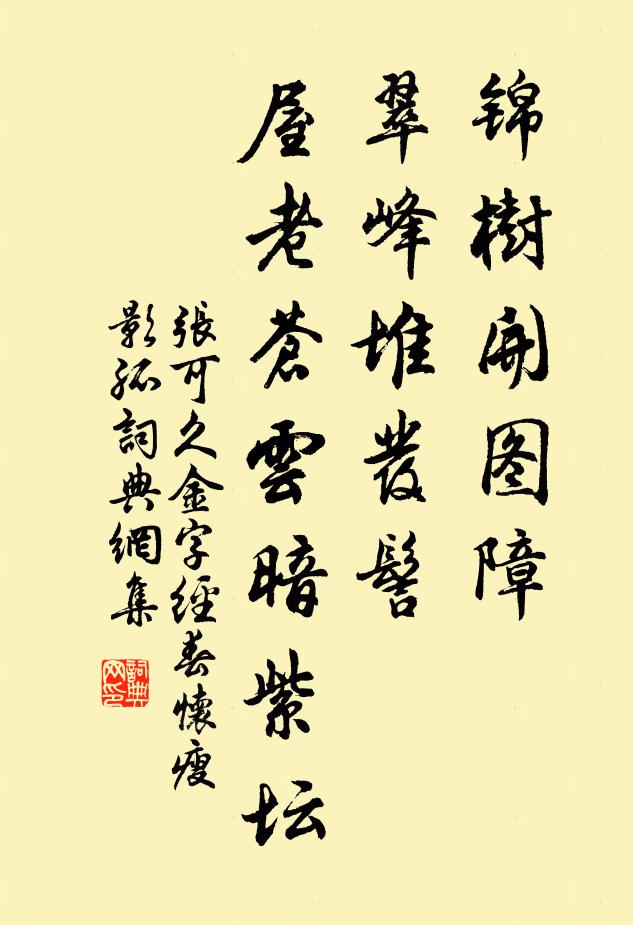 锦樹開图障
翠峰堆發髻
屋老苍雲暗紫坛
張可久金字經春懷瘦
影孤詞典網集
詞典
网印